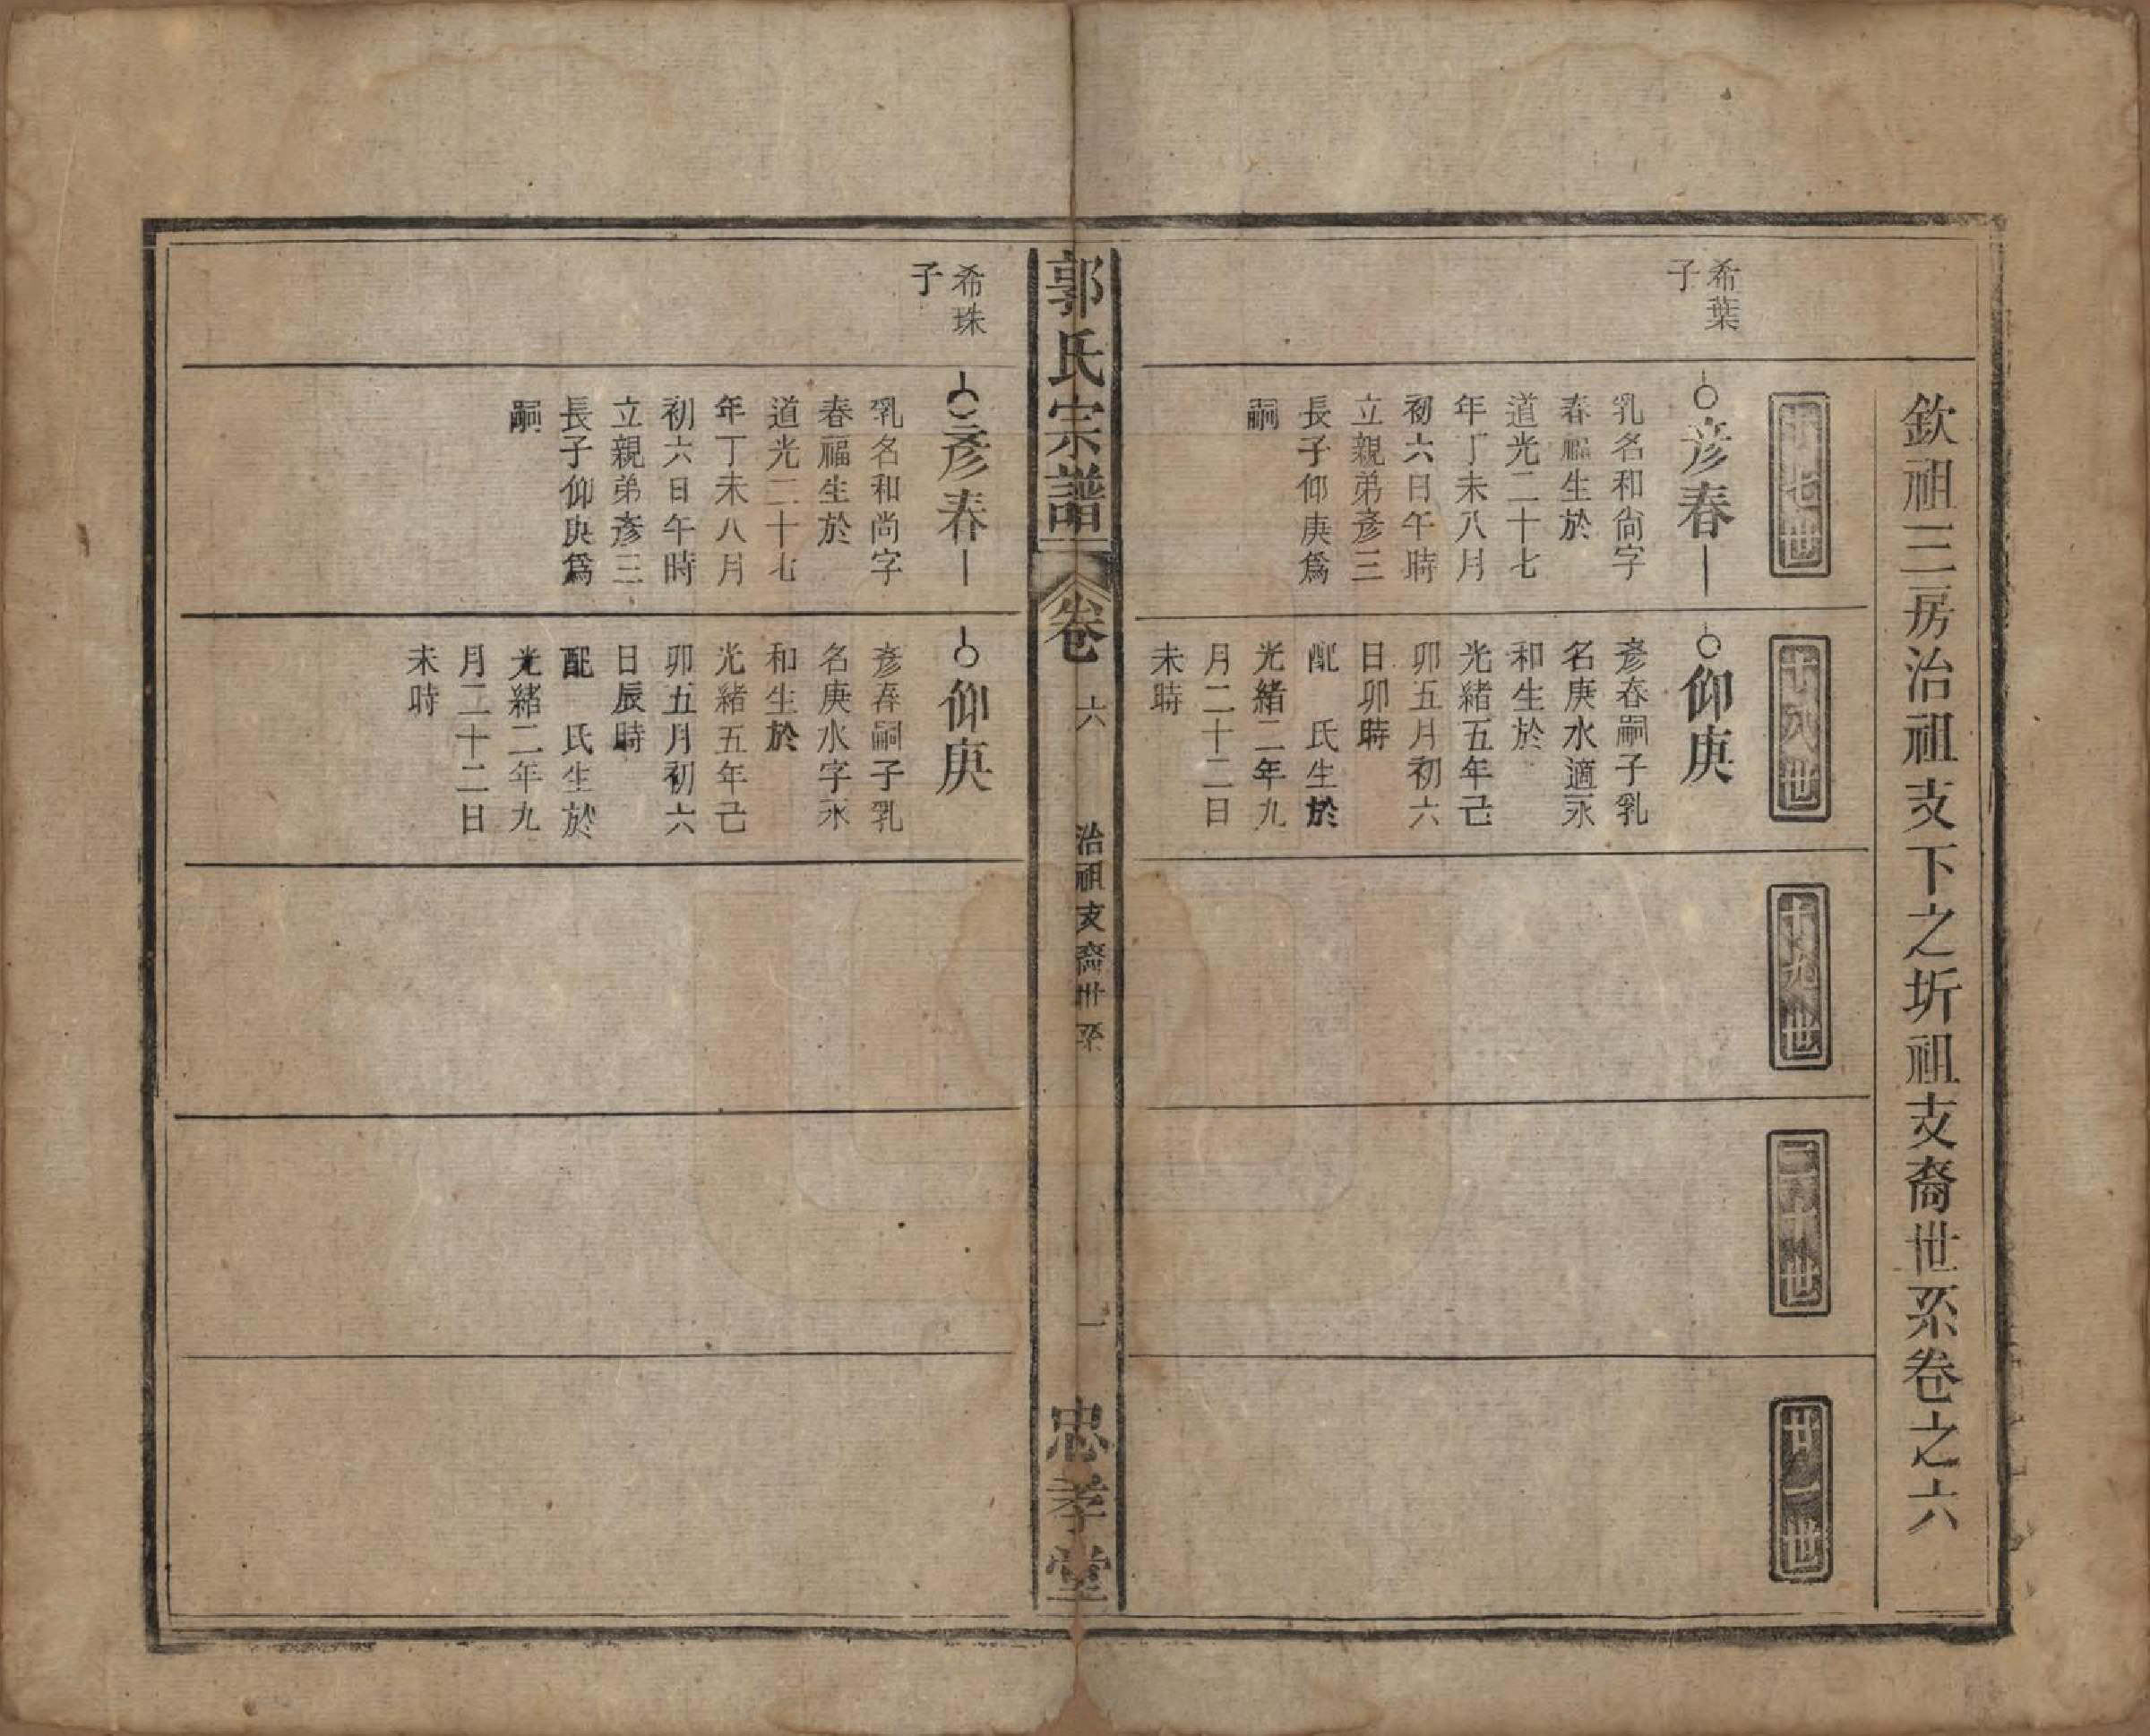 欽祖三房治祖支下之圻祖支裔世系卷之六
十七世
十八世
十九世
二十世
廿一世
希葉
子
彦春
乳名和尙字
春福生於
道光二十七
年丁未八月
初六日午時
立親弟彦三
長子仰庚爲
嗣
仰庚
彦春嗣子乳
名庚水適永
和生於
光緒五年己
卯五月初六
日卯時
配 氏生於
光緒二年九
月二十二日
未時
郭氏宗譜
卷 六
治祖支裔世系
一
忠孝堂
希珠
子
彦春
乳名和尙字
春福生於
道光二十七
年丁未八月
初六日午時
立親弟彦三
長子仰庚爲
嗣
仰庚
彦春嗣子乳
名庚水字永
和生於
光緒五年己
卯五月初六
日辰時
配 氏生於
光緒二年九
月二十二日
未時